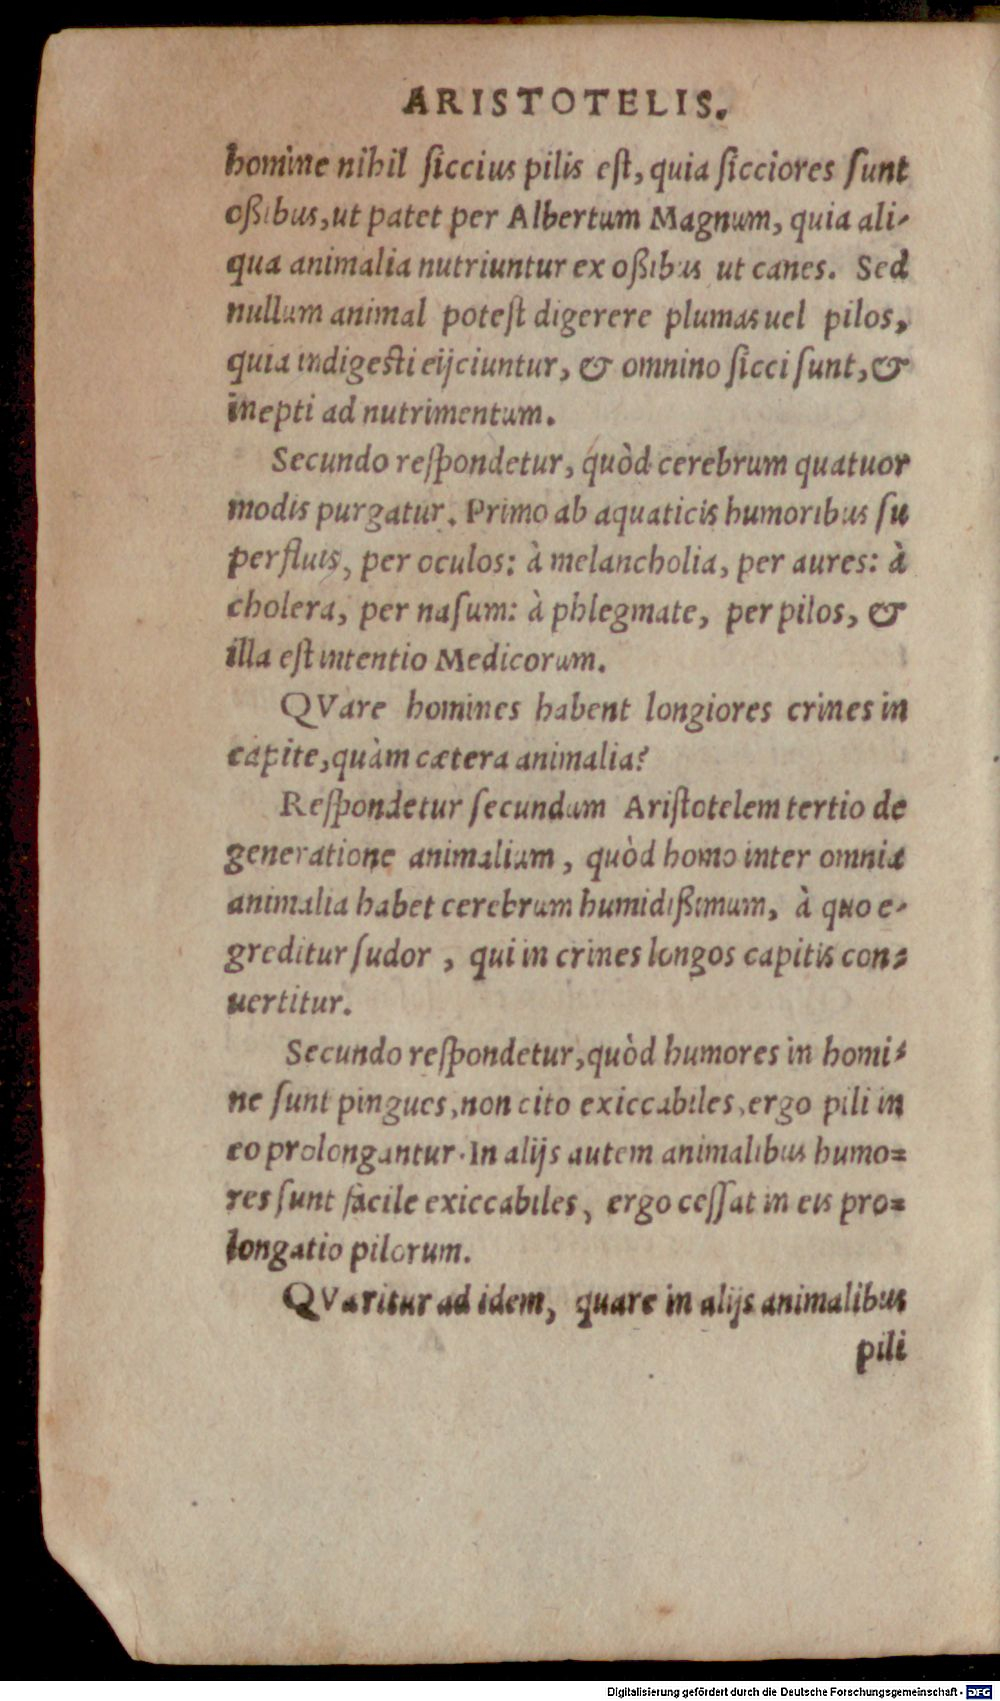 ARISTOTELIS.
homine nihil ſiccius pilis eſt, quia ſicciores ſunt
oßibus, ut patet per Albertum Magnum, quia ali-
qua animalia nutriuntur ex oßibus ut canes. Sed
nullum animal poteſt digerere plumas uel pilos,
quia indigeſti eijciuntur, & omnino ſicci ſunt, &
inepti ad nutrimentum.
Secundo reſpondetur, quòd cerebrum quatuor
modis purgatur. Primo ab aquaticis humoribus ſu
perfluis, per oculos: à melancholia, per aures: à
cholera, per naſum: à phlegmate, per pilos, &
illa eſt intentio Medicorum.
QVare homines habent longiores crines in
capite, quàm cætera animalia?
Reſpondetur ſecundum Ariſtotelem tertio de
generatione animalium, quòd homo inter omnia
animalia habet cerebrum humidißimum, à quo e-
greditur ſudor, qui in crines longos capitis con-
uertitur.
Secundo reſpondetur, quòd humores in homi-
ne ſunt pingues, non cito exiccabiles, ergo pili in
eo prolongantur. In alijs autem animalibus humo-
res ſunt facile exiccabiles, ergo ceſſat in eis pro-
longatio pilorum.
QVaritur ad idem, quare in alijs animalibus
pili
Digitalisierung gefördert durch die Deutsche Forschungsgemeinschaft - DFG